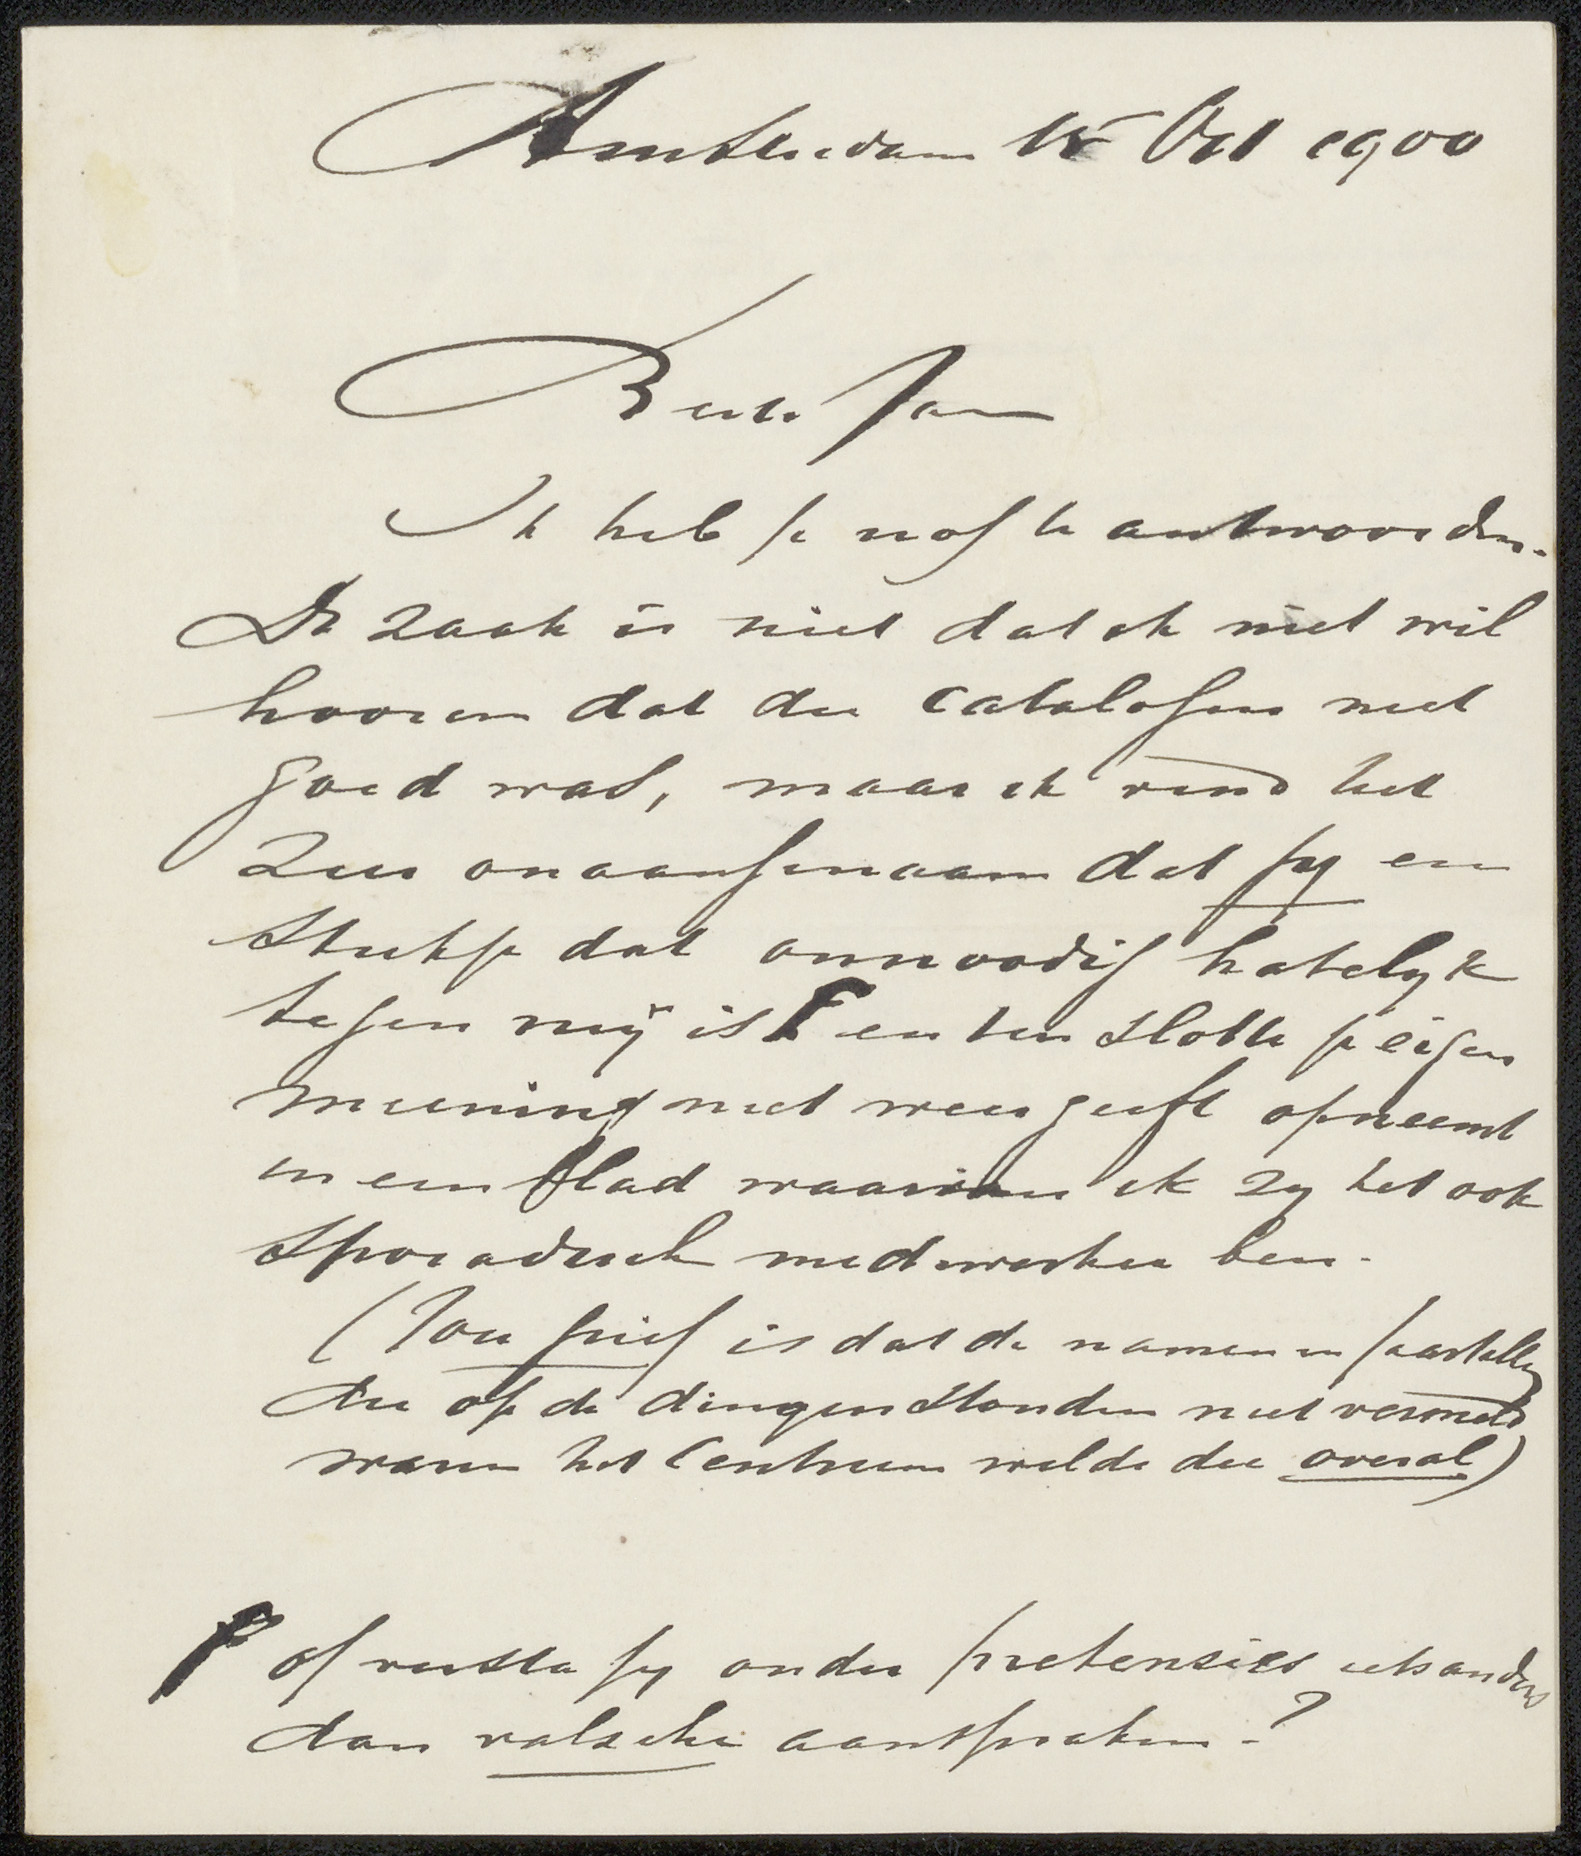 Amsterdam 15 Oct 1900
Beste Jan
Ik heb je nog te antwoorden.
De zaak is niet dat ik niet wil
hooren dat die catalogus niet
goed was, maar ik vind het
zeer onaangenaam dat jy een
stukje dat onnoodig hatelyk
tegen mij is F en ten slotte je eigen
meening niet weergeeft opneemt
in een blad waarvan ik zy het ook
sporadisch medewerker ben.
(Jou grief is dat de namen en jaartallen
die op de dingen stonden niet vermeld
waren het Centrum wilde die overal)
F of versta jy onder pretensies iets anders
dan valsche aanspraken?